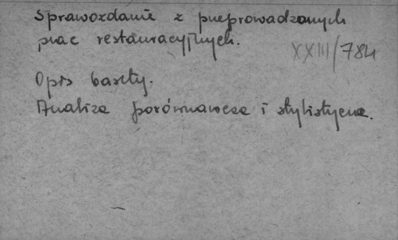 Sprawozdanie z przeprowadzonych
prac restauracyjnych.
XXIII/784
Opis baszty.
Analiza porównawcza i stylistyczna.